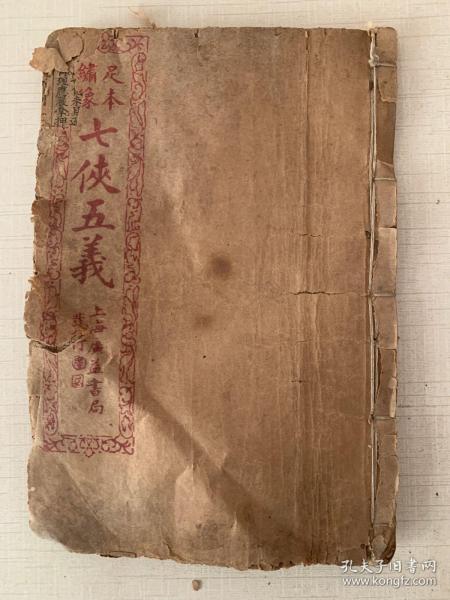 足本
繡像
七俠五義
上海廣益書局
發行
孔夫子旧书网
www.kongfz.com